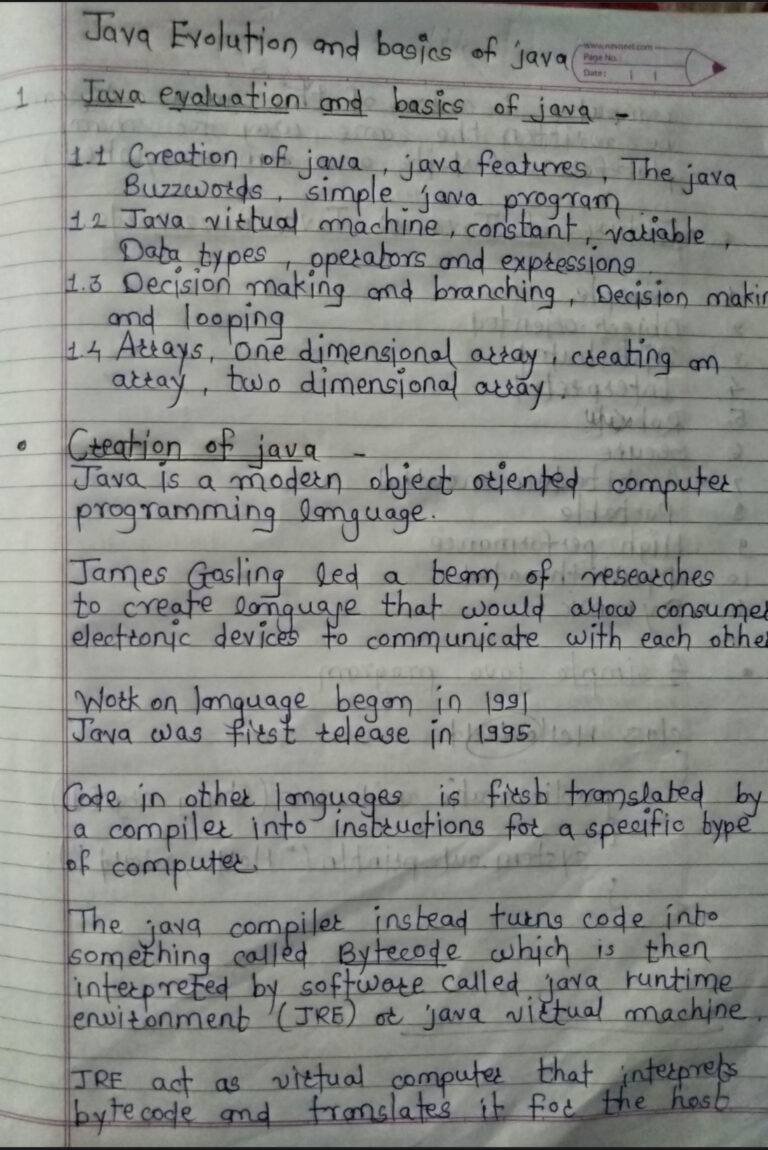 Java Evolution and basics of java
www.navneet.com
Page No.
Date:
1 Java evaluation and basics of java -
1.1 Creation of java, java features, The java
Buzzwords, simple java program
1.2 Java virtual machine, constant, variable,
Data types, operators and expressions
1.3 Decision making and branching, Decision makin
and looping
1.4 Arrays, One dimensional array, creating an
array, two dimensional array.
• Creation of java -
Java is a modern object oriented computer
programming language.
James Gosling led a team of researches
to create language that would allow consumer
electronic devices to communicate with each other
Work on language began in 1991
Java was first release in 1995
Code in other languages is first translated by
a compiler into instructions for a specific type
of computer.
The java compiler instead turns code into
something called Bytecode which is then
interpreted by software called java runtime
environment (JRE) or java virtual machine.
JRE act as virtual computer that interprets
bytecode and translates it for the host